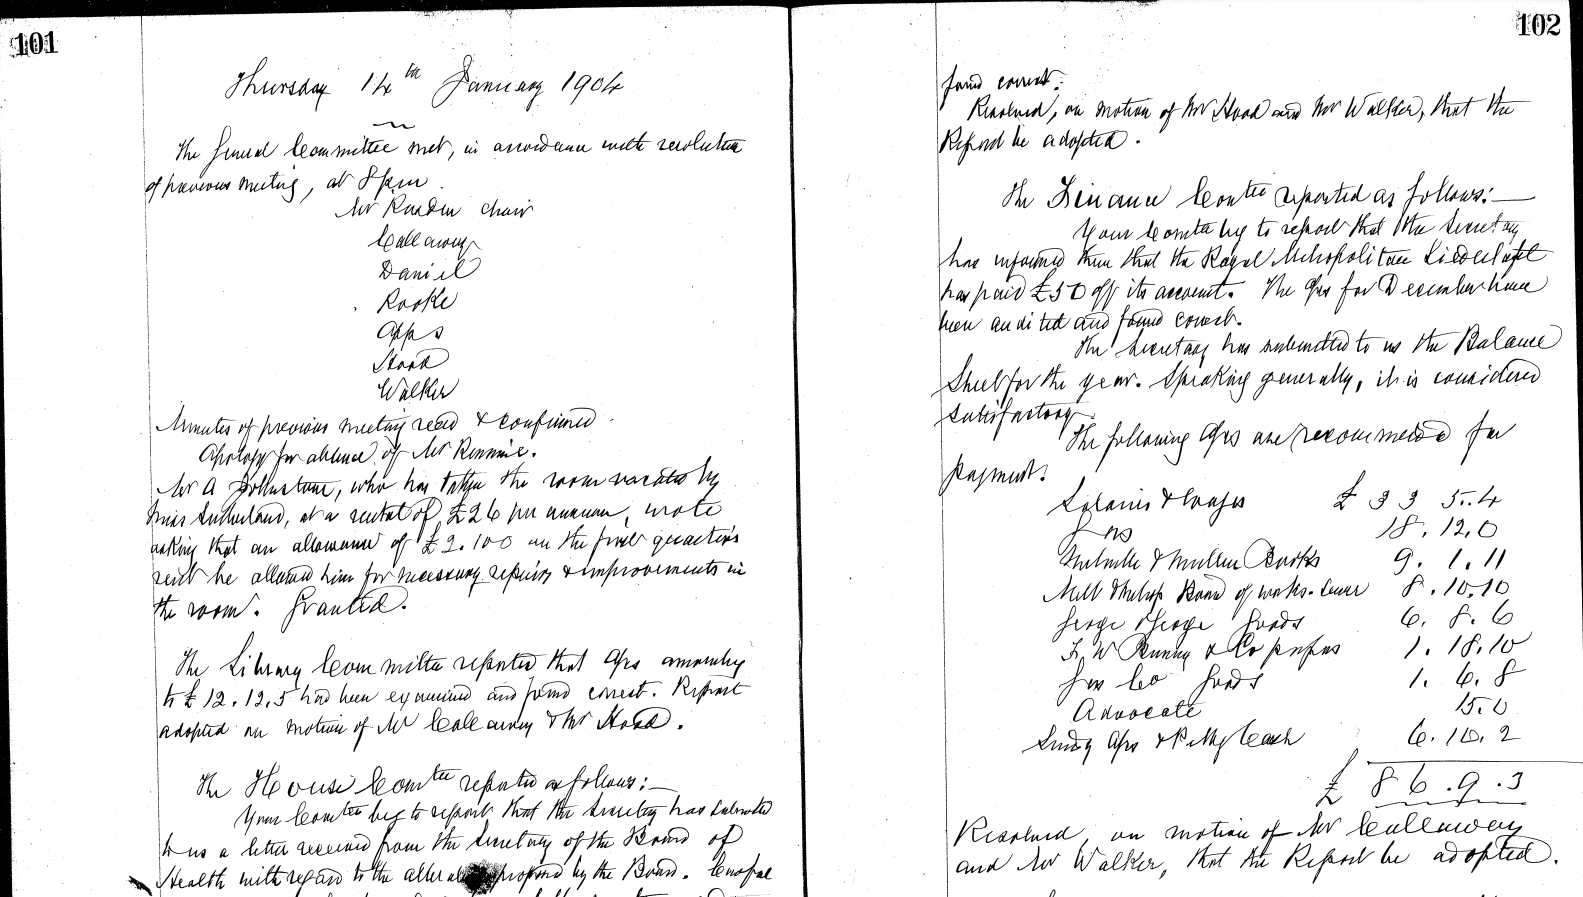 101
Thursday 14th January 1904
The General Committee met, in accordance with resolution
of previous meeting, at 8 pm.
Mr Ruaden chair
Callaway
Daniel
Rooke
Apps
Hood
Walker
Minutes of previous meeting read & confirmed.
Apology for absence of Mr Rennie.
Mr A Johnstone, who has taken the room vacated by
Miss Sutherland, at a rental of £26 per annum, wrote
asking that an allowance of £2.10.0 on the first quarter's
rent be allowed him for necessary repairs & improvements in
the room. Granted.
The Library Committee reported that a/cs amounting
to £12.12.5 had been examined and found correct. Report
adopted on motion of Mr Callaway & Mr Hood.
The House Comtee reported as follows:—
Your Comtee beg to report that the Secretary has submitted
to us a letter received from the Secretary of the Board of
Health with regard to the proposed by the Board.
102
found correct.
Resolved, on motion of Mr Hood and Mr Walker, that the
Report be adopted.
The Finance Comtee reported as follows:—
Your Comtee beg to report that the Secretary
has informed them that the Royal Metropolitan Liedertafel
has paid £50 off its account. The a/cs for December have
been audited and found correct.
The Secretary has submitted to us the Balance
Sheet for the year. Speaking generally, it is considered
satisfactory.
The following a/cs are recommended for
payment.
Salaries & Wages £ 33 5.4
Gas 18.12.0
Melville & Mullen Books 9.1.11
Melb & Metrop Board of works. Sewer 8.10.10
George & George Goods 6.8.6
F. W Bunny & Co papers 1.18.10
Gas Co Goods 1.6.8
Advocate 15.0
Sundry a/cs & Petty Cash 6.10.2
£ 86.9.3
Resolved, on motion of Mr Callaway
and Mr Walker, that the Report be adopted.